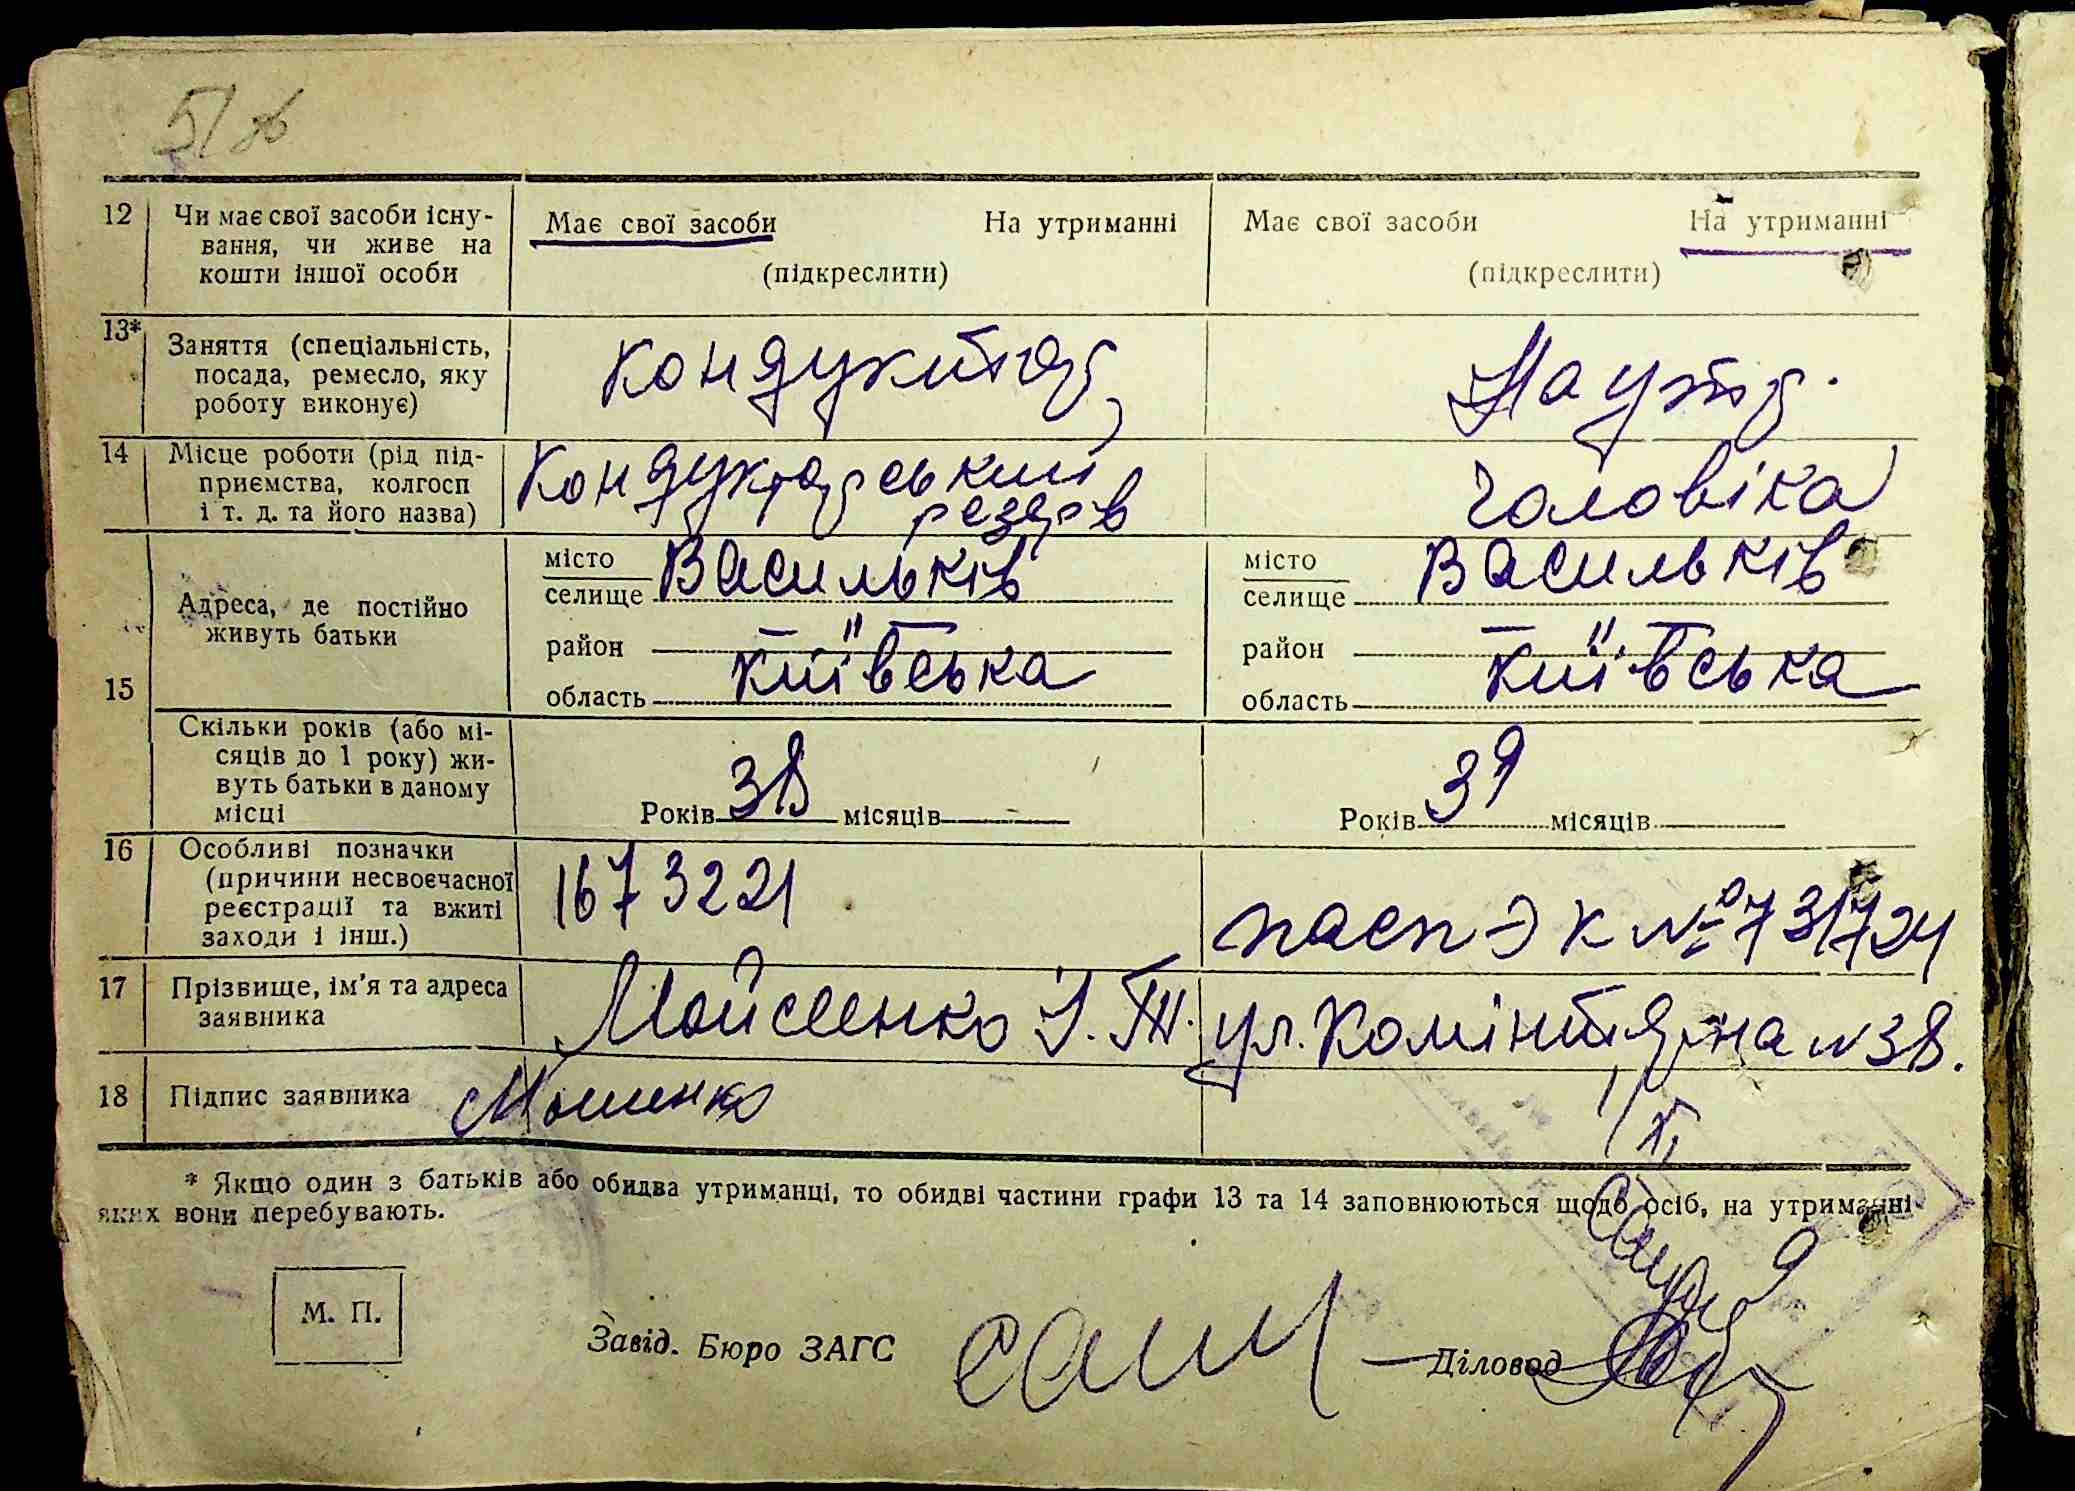 51 зв
12 Чи має свої засоби існу-
вання, чи живе на
кошти іншої особи
Має свої засоби На утриманні
(підкреслити)
Має свої засоби На утриманні
(підкреслити)
13* Заняття (спеціальність,
посада, ремесло, яку
роботу виконує)
Кондуктор
На утр.
14 Місце роботи (рід під-
приємства, колгосп
і т. д. та його назва)
Кондукторський
резерв
чоловіка
15 Адреса, де постійно
живуть батьки
місто
селище Васильків
район — " —
область Київська
місто
селище Васильків
район — " —
область Київська
Скільки років (або мі-
сяців до 1 року) жи-
вуть батьки в даному
місці
Років 38 місяців —
Років 39 місяців
16 Особливі позначки
(причини несвоєчасної
реєстрації та вжиті
заходи і інш.)
1673221
пасп ЭК № 731724
17 Прізвище, ім'я та адреса
заявника
Мойсеенко І. Т. ул. Комінтерна N 38.
18 Підпис заявника
* Якщо один з батьків або обидва утриманці, то обидві частини графи 13 та 14 заповнюються щодо осіб, на утриманні
яких вони перебувають.
М. П.
Завід. Бюро ЗАГС
Діловод